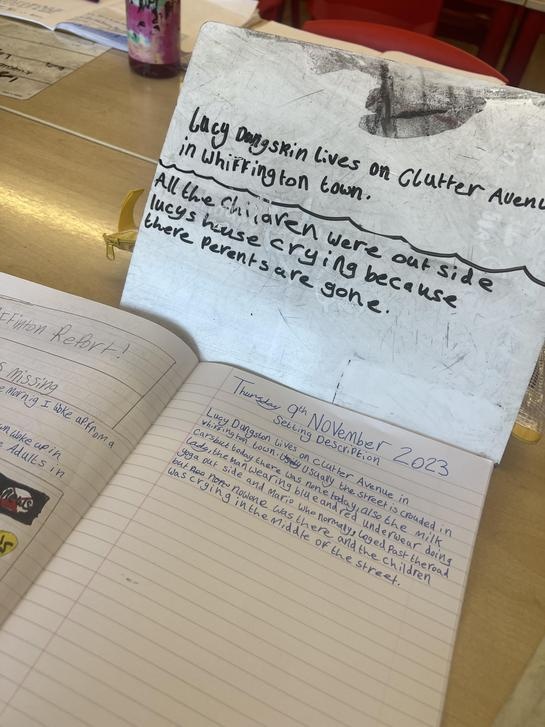 Lucy Dangskin lives on Clutter Avenu
in Whiffington town.
All the Children were out side
lucys house crying because
there Perents are gone.
ffinton Report!
s missing
e Mornig I woke up from a
wn woke up in
e Adults in
Thursday 9th November 2023
Setting Description
Lucy Dangskin lives on Clutter Avenue in
Whiffington town. Usually the street is crouded in
cars but today there was none today, also the Milk
lady, the Man Wearing blue and red underwear doing
yoga out side and Mario who normaly loged past the road
but noone was there and the children
was crying in the Middle of the street.